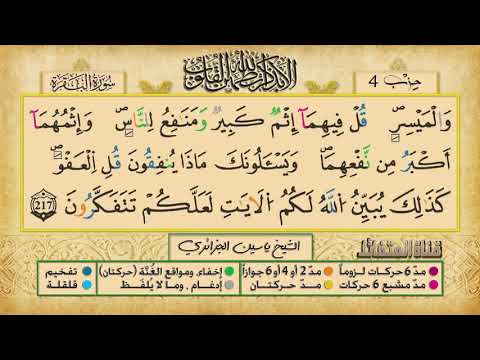 حزب 4
ألا بذكر الله تطمئن القلوب
سورة البقرة
وَالْمَيْسِرِۖ قُلْ فِيهِمَآ إِثْمٌ كَبِيرٌ وَمَنَٰفِعُ لِلنَّاسِۖ وَإِثْمُهُمَآ
أَكْبَرُ مِن نَّفْعِهِمَاۖ وَيَسْـَٔلُونَكَ مَاذَا يُنفِقُونَ قُلِ اِ۬لْعَفْوَۖ
كَذَٰلِكَ يُبَيِّنُ اُ۬للَّهُ لَكُمُ اُ۬لَايَٰتِ لَعَلَّكُمْ تَتَفَكَّرُونَ 217
قناة
الشيخ ياسين الجزائري
مدّ 6 حركات لزوماً مدّ 2 أو 4 أو 6 جوازاً إخفاء، ومواقع الغُنَّة (حركتان) تفخيم
مدّ مشبع 6 حركات مدّ حركتان إدغام، وما لا يُلفَظ قلقلة